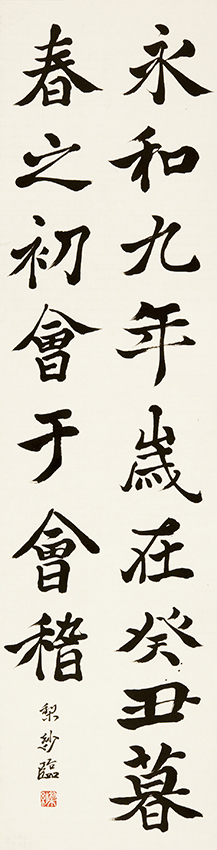 永和九年歳在癸丑暮
春之初會于會稽
梨紗臨